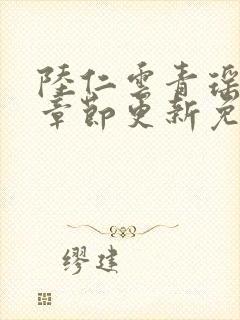 陆仁云青瑶
章节更新免
缪建